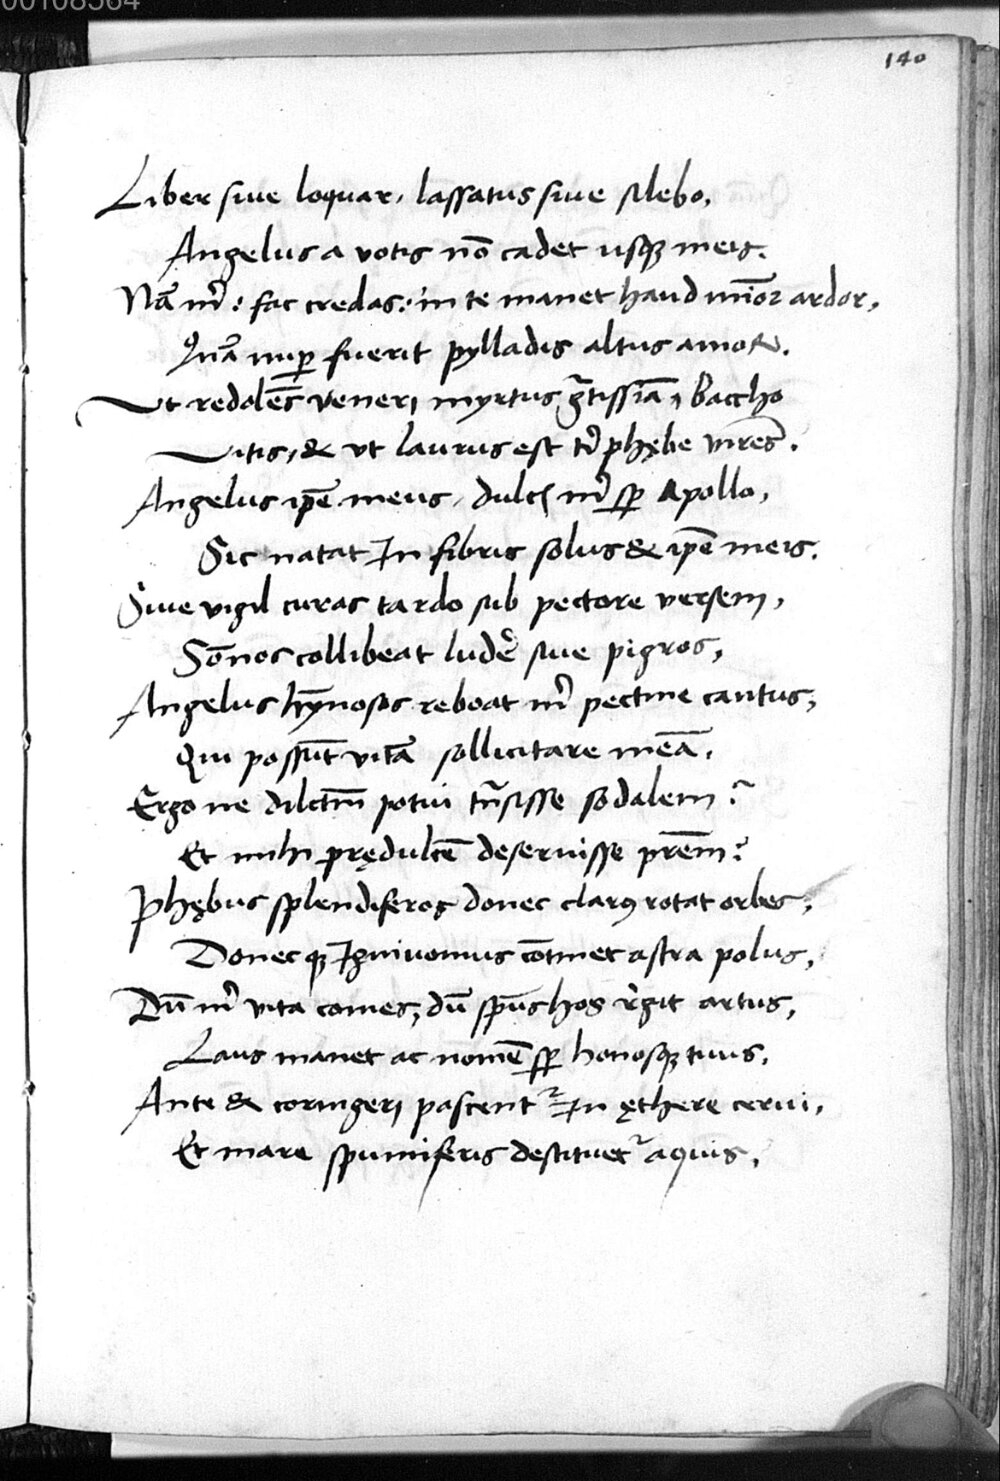 00108564
140
Liber siue loquar, lassatus siue silebo,
Angelus a votis nō cadet usqꝫ meis.
Nā m̄: fac credas: in te manet haud mīoꝛ ardor,
Quā nuꝑ fuerit pylladis altus amor.
Vt redolēs veneri myrtus gr̄tissīa, baccho
Vitis, & vt laurus est t̄ phębe virēs.
Angelus ip̄e meus, dulcis m̄ sꝑ Apollo,
Sic natat In fibris solus & ip̄e meis.
Siue vigil curas tardo sub pectore versem,
Sōnos collibeat ludē siue pigros,
Angelus hȳnosos reboat m̄ pectine cantus,
Qui possūt vitā sollicitare meā.
Ergo ne dilctm̄ potui tn̄sisse sodalem?
Et mihi prędulcē deseruisse prēm?
Phębus splendiferos donec clarꝰ rotat orbes,
Donecqꝫ Igniuomus cōtinet astra polus,
Dū m̄ vita comes, dū sp̄us hos r̄git artus,
Laus manet ac nomē sꝑ honosqꝫ tuus.
Ante & coringeri pascentᷣ In ęthere cerui,
Et mare spumiferis destituetᷣ aquis.